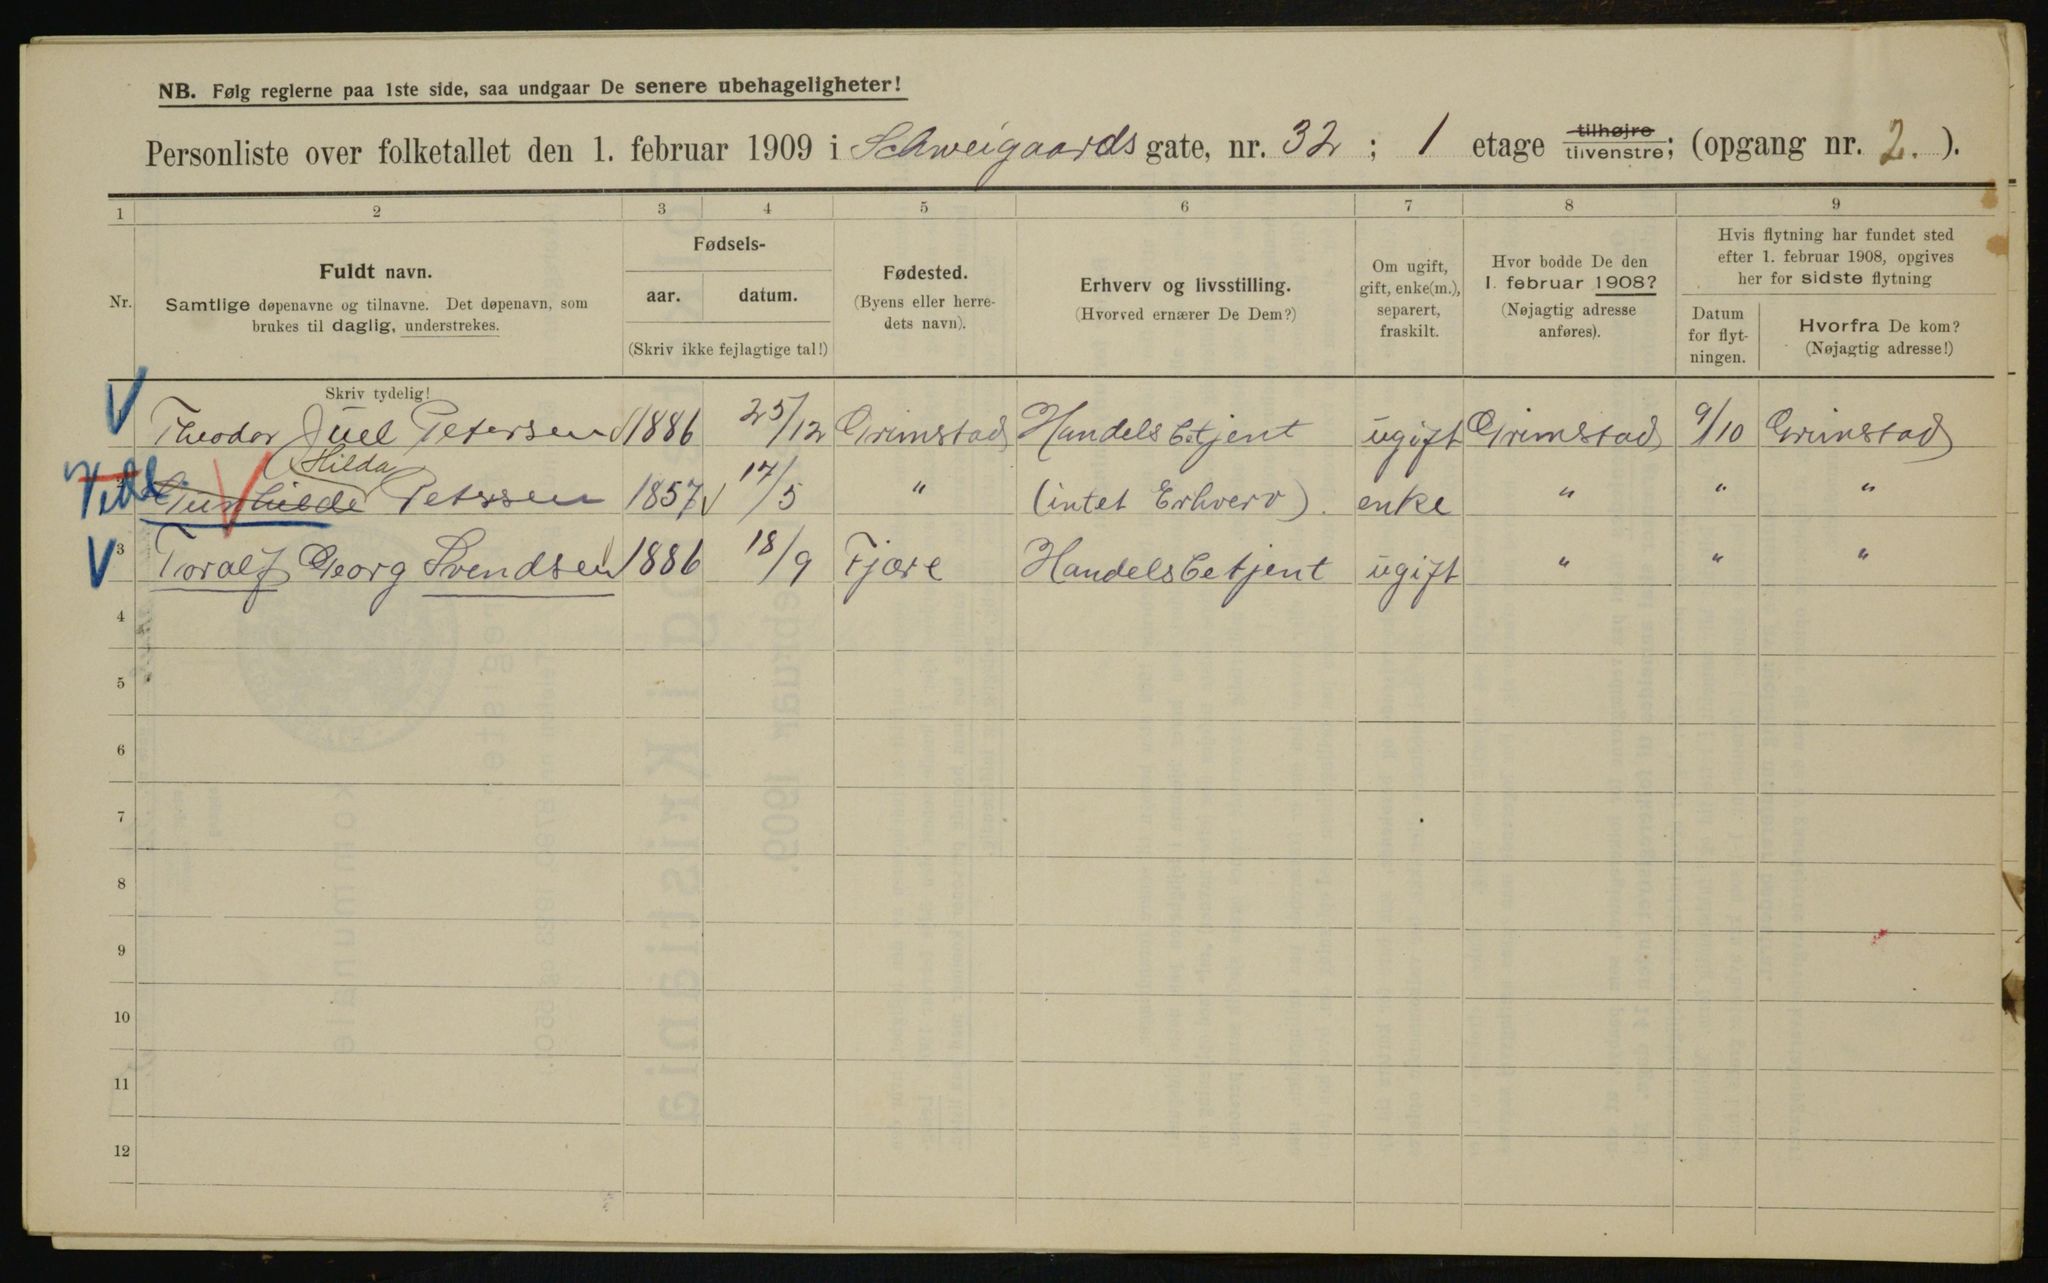 NB. Følg reglerne paa 1ste side, saa undgaar De senere ubehageligheter!
Personliste over folketallet den 1. februar 1909 i Schweigaards gate, nr. 32 ; 1 etage tilhøjre tilvenstre; (opgang nr. 2. ).
1 2 3 4 5 6 7 8 9
Nr.
Fuldt navn.
Samtlige døpenavne og tilnavne. Det døpenavn, som
brukes til daglig, understrekes.
Fødsels-
aar. datum.
(Skriv ikke fejlagtige tal!)
Fødested.
(Byens eller herre-
dets navn).
Erhverv og livsstilling.
(Hvorved ernærer De Dem?)
Om ugift,
gift, enke(m.),
separert,
fraskilt.
Hvor bodde De den
1. februar 1908?
(Nøjagtig adresse
anføres).
Hvis flytning har fundet sted
efter 1. februar 1908, opgives
her for sidste flytning
Datum
for flyt-
ningen.
Hvorfra De kom?
(Nøjagtig adresse!)
Skriv tydelig!
Theodor Juel Petersen 1886 25/12 Grimstad Handelsbetjent ugift Grimstad 9/10 Grimstad
Hilda
Gunhilde Petersen 1857 17/5 " (intet Erhverv). enke " " "
3 Toralf Georg Svendsen 1886 18/9 Fjære Handelsbetjent ugift " " "
4
5
6
7
8
9
10
11
12